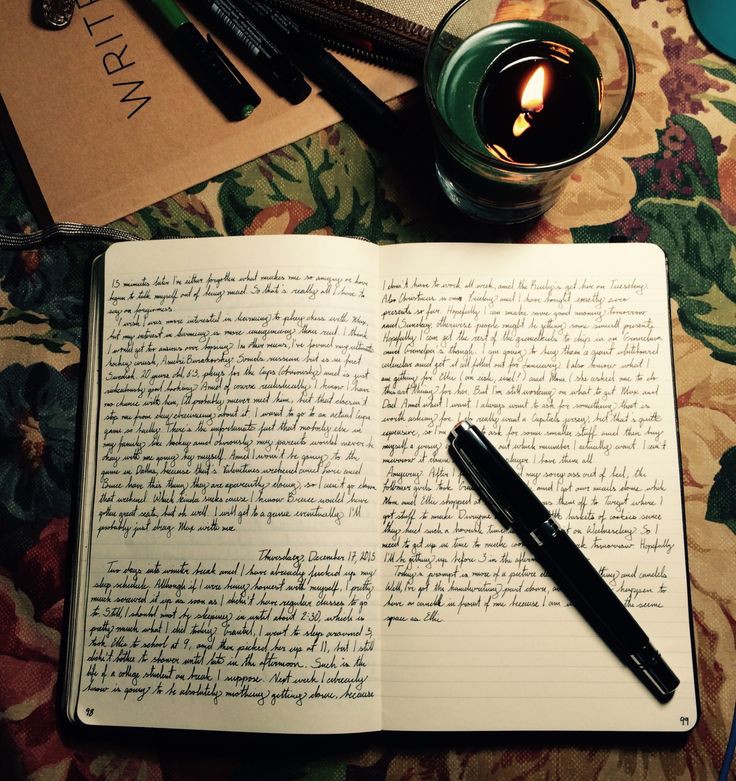 WRITE
15 minutes later I've either forgotten what makes me so angry or have
begun to talk myself out of being mad. So that's really all I have to
say on forgiveness.
I wish I was more interested in learning to play chess with Max,
but my interest in learning is more imaginary than real. I think
I would get too serious over losing. In other news, I've found my ultimate
hockey crush, Andre Burakovsky. Sounds russian but is in fact
Swedish. 20 years old, 6'3, plays for the Caps (obviously) and is just
ridiculously good looking. And of course realistically I know I have
no chance with him, I'll probably never meet him, but that doesn't
stop me from day dreaming about it. I want to go to an actual Caps
game so badly. There's the unfortunate fact that nobody else in
my family like hockey and obviously my parents would never be
okay with me going by myself. And I won't be going to the
game in Dallas, because that's Valentines weekend and and
Bruce have this thing they are apparently doing, so I can't go down
that weekend. Which kinda sucks cause I know Bruce would have
gotten great seats, but oh well. I will get to a game eventually. I'll
probably just drag Max with me.
Thursday, December 17, 2015
Two days into winter break and I have already fucked up my
sleep schedule. Although if I were being honest with myself, I pretty
much screwed it up as soon as I didn't have regular classes to go
to. Still, I should not by sleeping in until about 2:30, which is
pretty much what I did today. Granted, I went to sleep around 3,
took Ellie to school at 9, and then picked her up at 11, but I still
didn't bother to shower until late in the afternoon. Such is the
life of a college student on break I suppose. Next week I already
know is going to be absolutely nothing getting done, because
98
I don't have to work all week, and the get here on Tuesday.
Also Christmas is on Friday and I have bought exactly zero
presents so far. Hopefully I can make some good money tomorrow
and Sunday otherwise people might be getting some small presents.
Hopefully I can get the rest of the grandkids to chip in on Grandma
and Grandpa's though. I am going to buy them a giant whiteboard
calendar and get it all filled out for January. I also know what I
am getting for Ellie (an inside joke!) and Mom (she asked me to do
this art thing) for her. But I'm still working on what to get Max and
Dad. And what I want. I always want to ask for something that is
worth asking for but I really want a Capitals jersey but that's quite
expensive, so I'm ask for some smaller stuff and then buy
myself a jersey out which number I actually want. I can't
narrow it down player I love them all.
Anyway. After my sorry ass out of bed, the
follower girls took and I got our nails done while
Mom and Ellie shopped them off to Target where I
got stuff to make batch of cookies since
they had such a horrible time on Wednesday. So I
need to get up in time to make tomorrow. Hopefully
I'll be getting up before 3 in the
Today's prompt is more of a picture and candels.
Well, I've got the handwriting part down, happen to
have a candle in front of me because I am the same
space as Ellie.
99